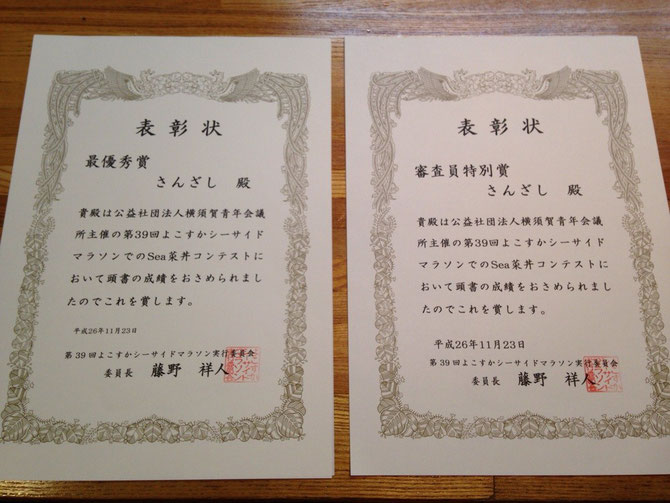 表彰状
最優秀賞
さんざし 殿
貴殿は公益社団法人横須賀青年会議
所主催の第39回よこすかシーサイド
マラソンでのSea菜丼コンテストに
おいて頭書の成績をおさめられまし
たのでこれを賞します。
平成26年11月23日
第39回よこすかシーサイドマラソン実行委員会
委員長 藤野 祥人
表彰状
審査員特別賞
さんざし 殿
貴殿は公益社団法人横須賀青年会議
所主催の第39回よこすかシーサイド
マラソンでのSea菜丼コンテストに
おいて頭書の成績をおさめられまし
たのでこれを賞します。
平成26年11月23日
第39回よこすかシーサイドマラソン実行委員会
委員長 藤野 祥人